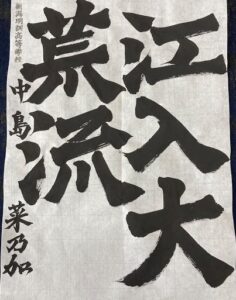 江入大
荒流
新潟明訓高等学校
中島 菜乃加